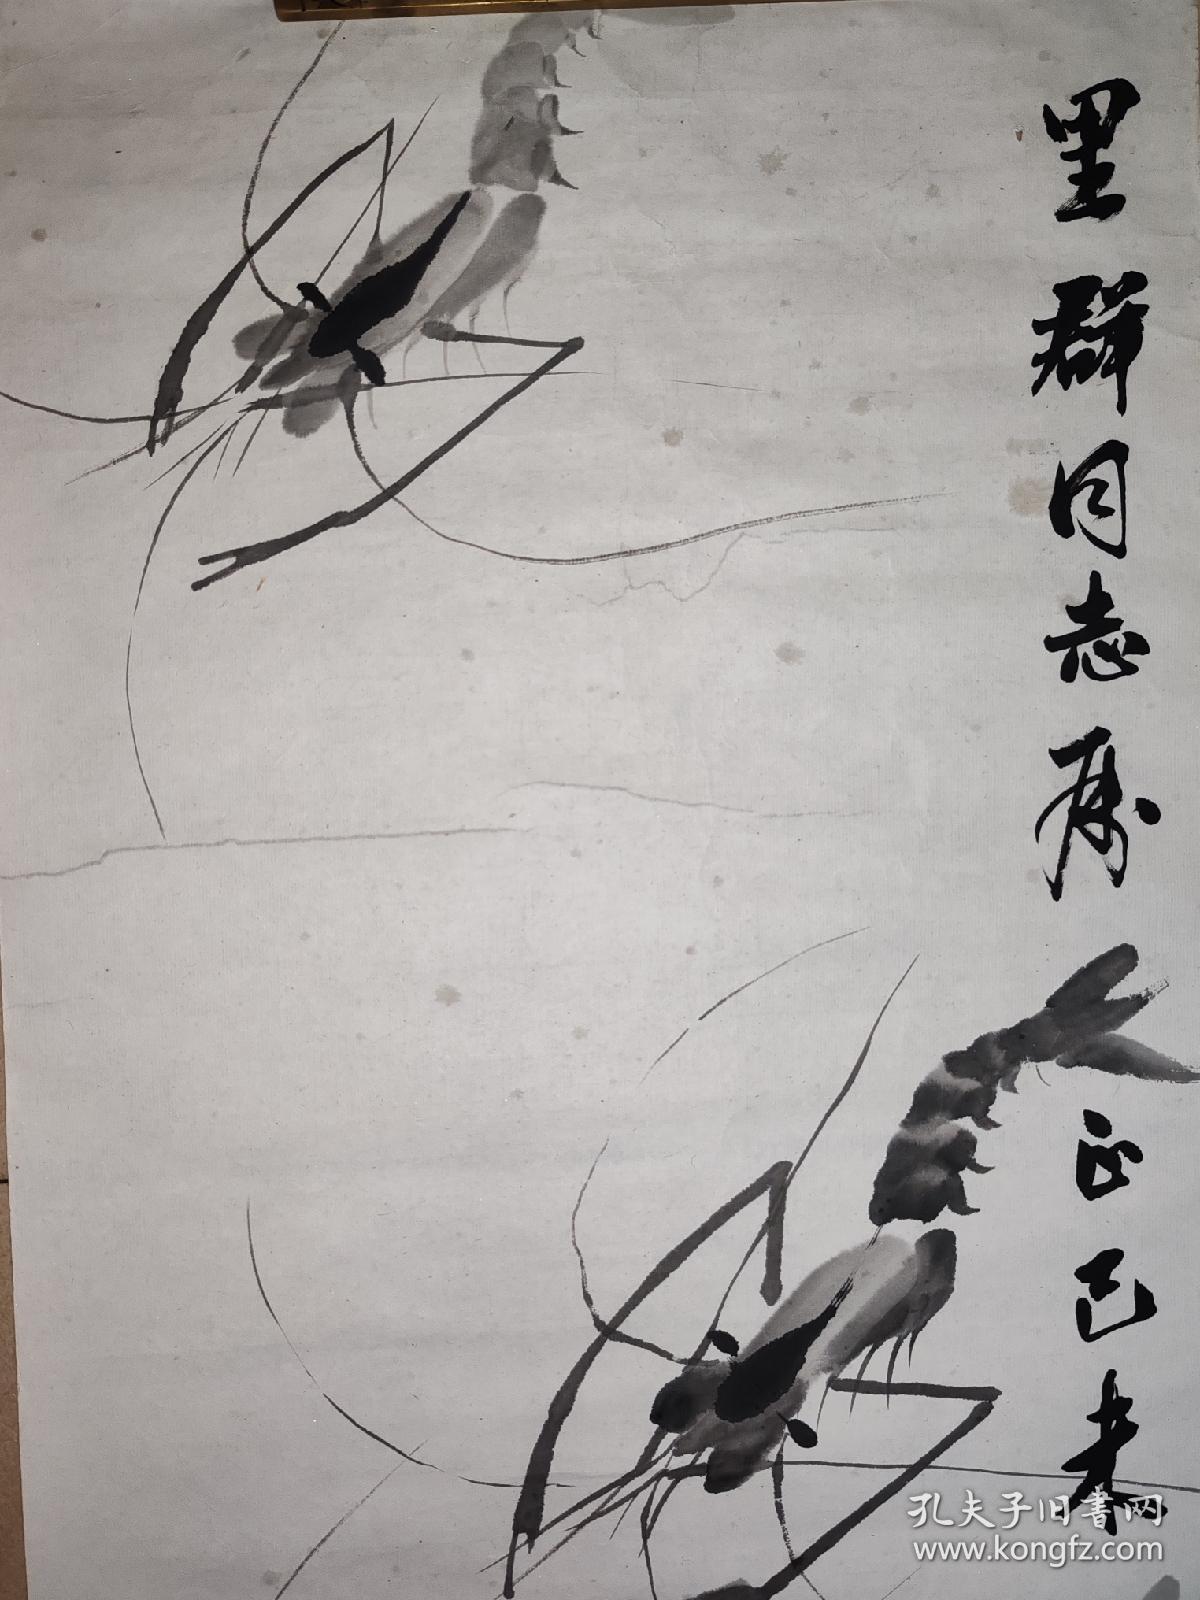 里群同志属正己未
孔夫子旧书网
www.kongfz.com